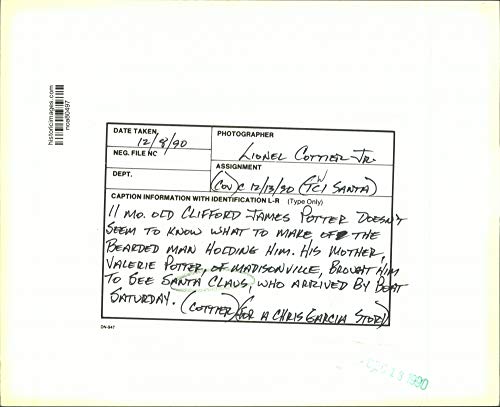 historicimages.com
noa60497
DATE TAKEN
12/8/90
PHOTOGRAPHER
LIONEL COTTIER JR.
NEG. FILE NO
ASSIGNMENT
DEPT.
(COV) C 12/13/90 (TCI SANTA)
W
CAPTION INFORMATION WITH IDENTIFICATION L-R (Type Only)
11 MO. OLD CLIFFORD JAMES POTTER DOESN'T
SEEM TO KNOW WHAT TO MAKE OF THE
BEARDED MAN HOLDING HIM. HIS MOTHER,
VALERIE POTTER, OF MADISONVILLE, BROUHT HIM
TO SEE SANTA CLAUS, WHO ARRIVED BY BOAT
SATURDAY. (COTTIER) (FOR A CHRIS GARCIA STORY)
DN-947
1990